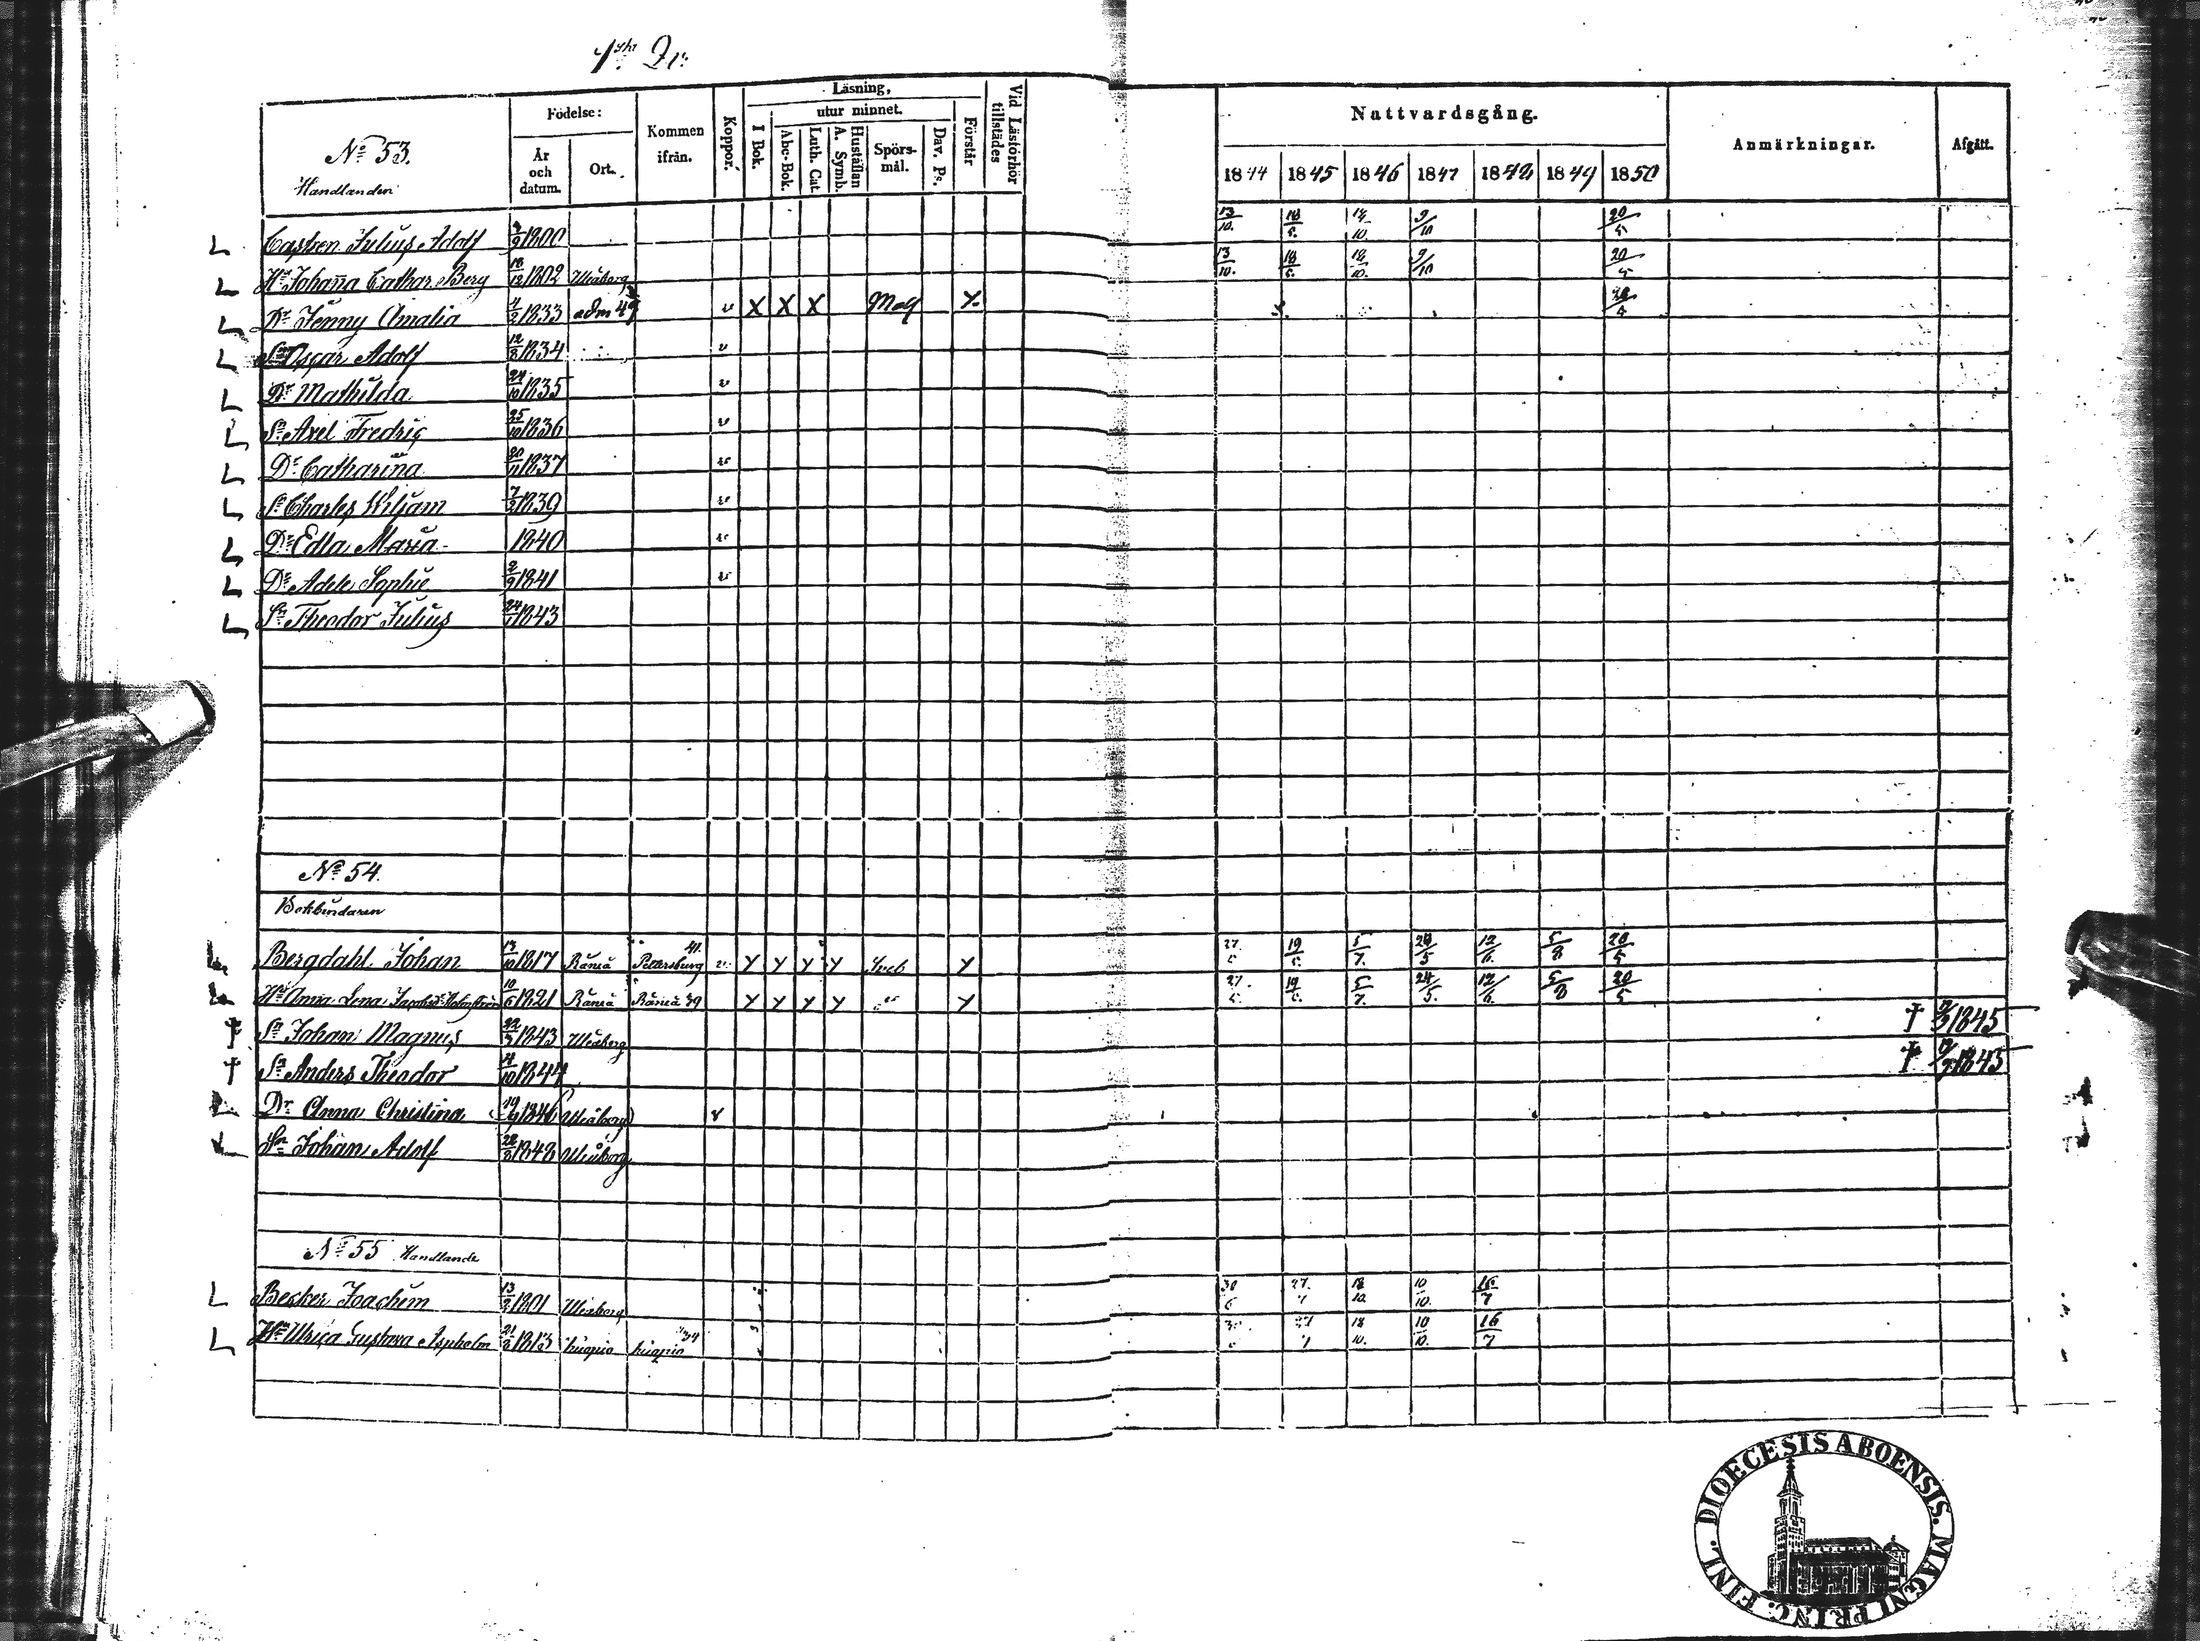 1sta Qr:
No 53.
Handlanden
Födelse:
År och datum.
Ort.
Kommen ifrån.
Koppor.
Läsning,
utur minnet.
I Bok.
Abc-Bok.
Luth. Cat.
Hustaflan A. Symb.
Spörs-mål.
Dav. Ps.
Förstår
Vid Läsförhör tillstädes
Nattvardsgång.
1844 1845 1846 1847 1848 1849 1850
Anmärkningar.
Afgått.
L Castren Julius Adolf 1800 13/10. 9/10 20/5
L Hu Johanna Cathar. Berg 18/12 1802 Uleåborg 13/10. 9/10 20/5
L Dr Jenny Amalia 1833 adm 49 v X X X X
L Sn Oscar Adolf 12/8 1834 v
L Dr Mathilda 24/10 1835 v
L Sn Axel Fredric 25/10 1836 v
L Dr Catharina 20/11 1837 v
L Sn Charles Wiljam 7/2 1839 v
L Dr Edla Maria 1840 v
L Dr Adele Sophie 2/9 1841 v
L Sn Theodor Julius 1843
No 54.
Bokbindaren
L Bergdahl Johan 13/10 1817 Råneå Pettersburg 41. v Y Y Y Y Y 27 19 5/7. 24/5 12/6. 5/8 20/5
L Hu Anna Lena Holmström 10/6 1821 Råneå Råneå 39 Y Y Y Y Y 27. 19 5/7. 24/5. 12/6. 5/8 20/5
† Sn Johan Magnus 1843 Uleåborg † 1845
† Sn Anders Theodor 1844 † 1845
L Dr Anna Christina 1846 Uleåborg v
L Sn Johan Adolf 1848 Uleåborg
No 55 Handlande
L Becker Joachim 13/2 1801 Uleåborg 30 27. 18/10. 10/10. 16/7
L Hu Ulrica Gustava Aspholm 1813 kuopio kuopio 27 18/10. 10/10. 16/7
DIOECESIS ABOENSIS. MAGNI PRINC. FINL.